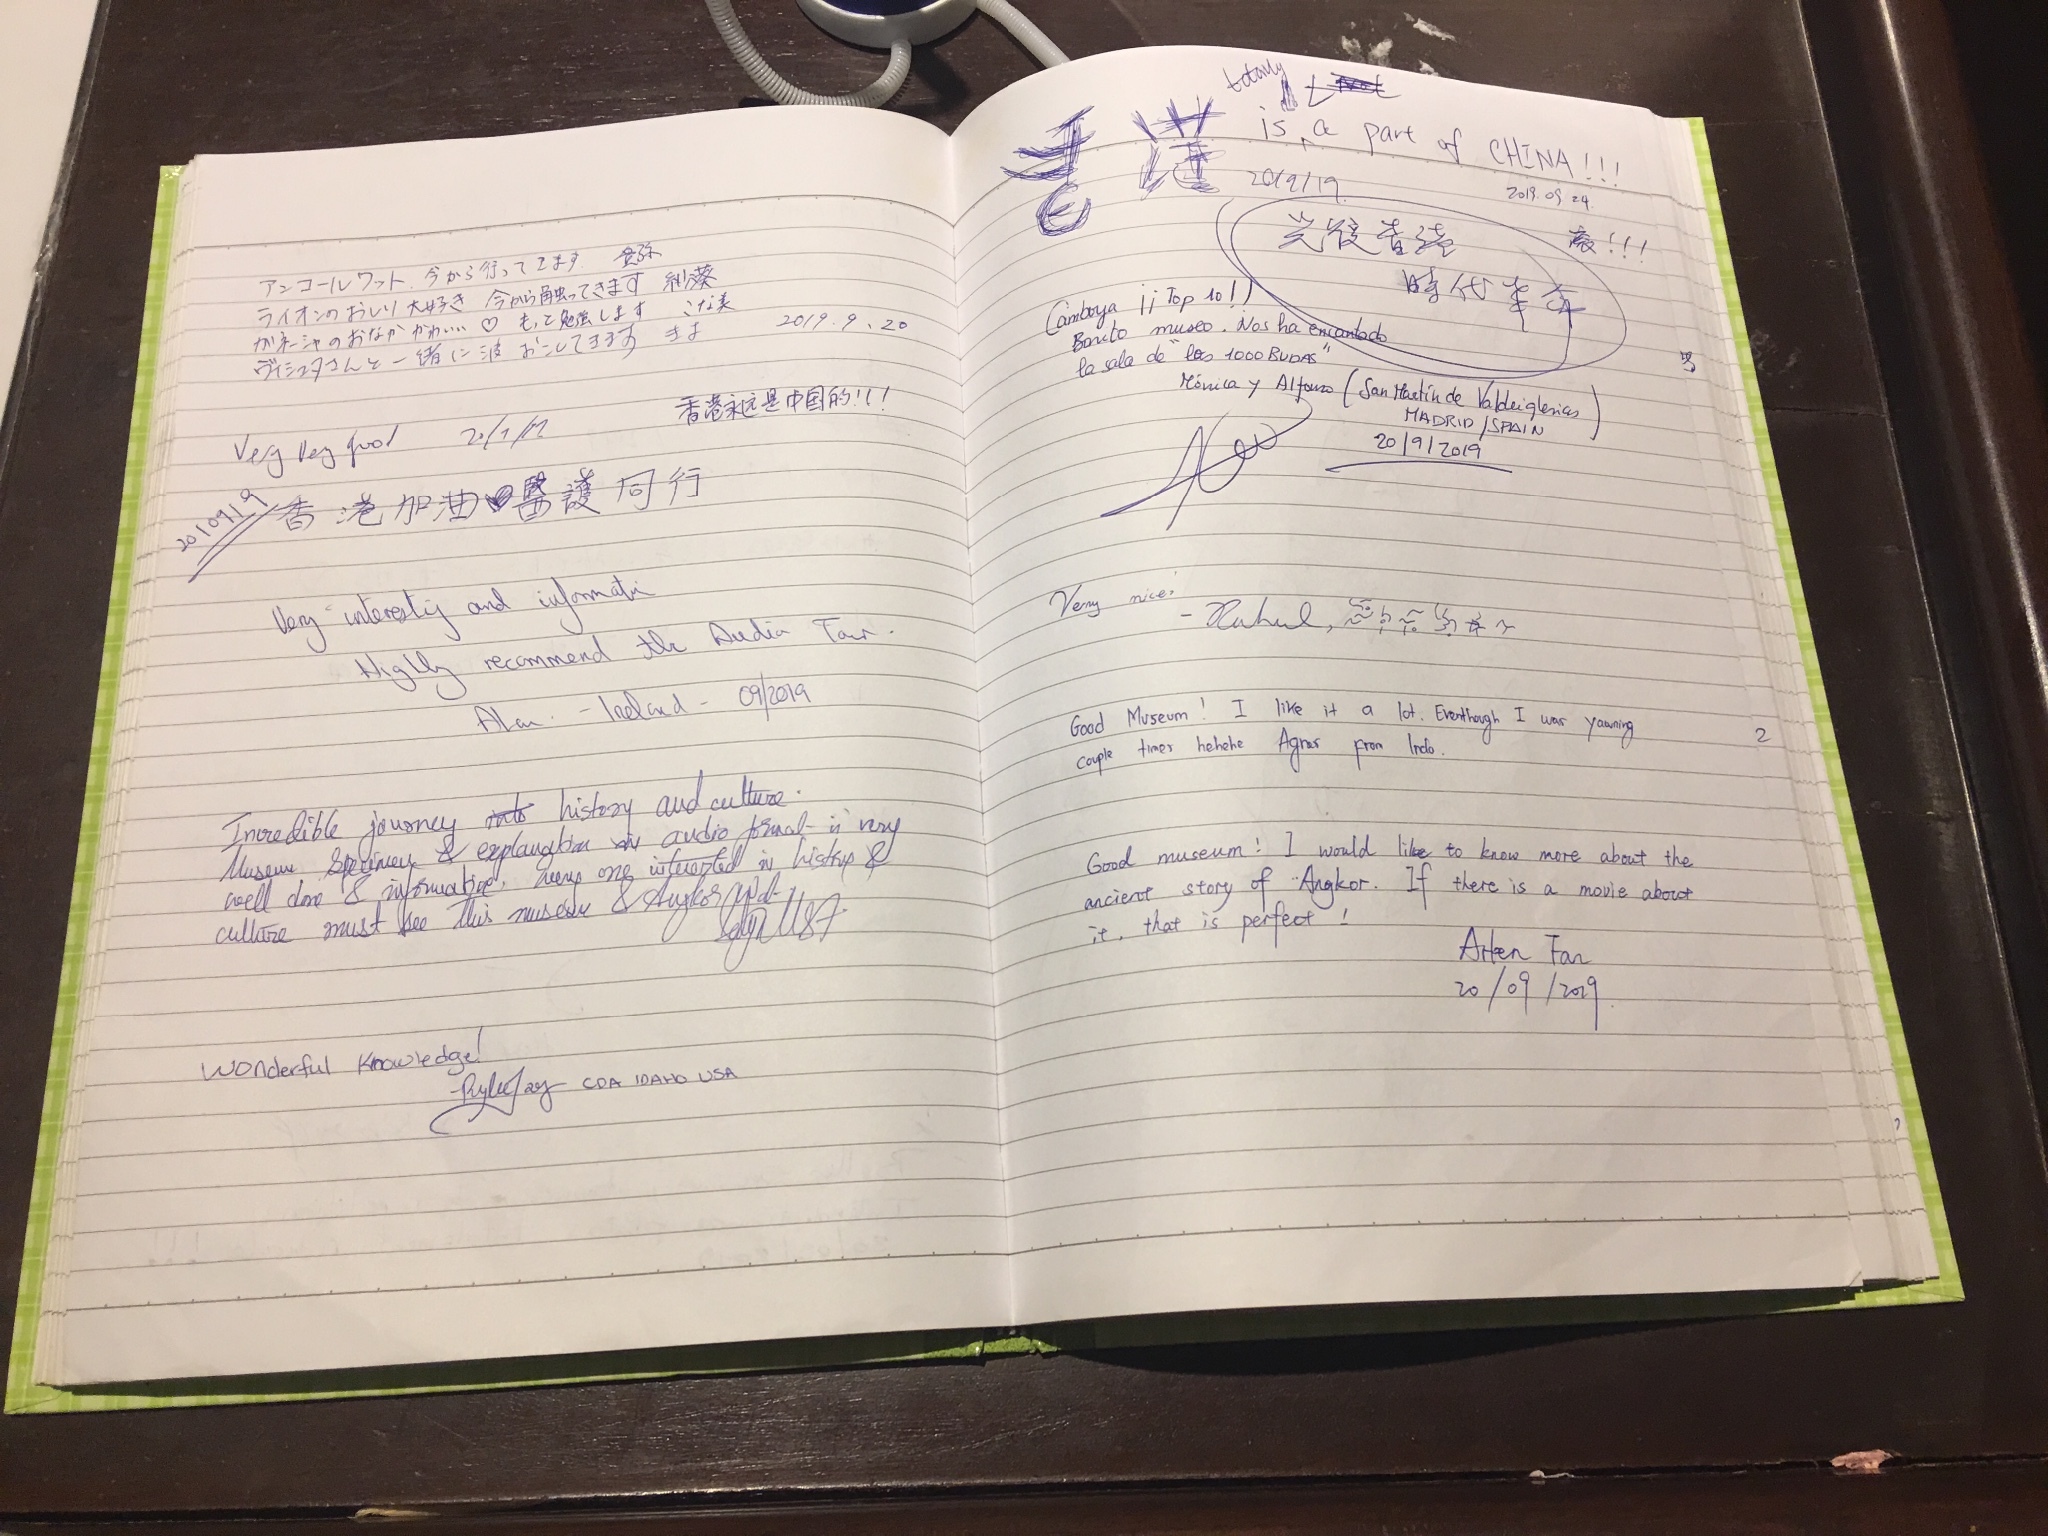 アンコールワット、今から行ってきます
ライオンのおしり大好き 今から触ってきます
ガネーシャのおなかかわいい♡ もっと勉強します
ヴィシュヌさんと一緒に波おこしてきます
2019.9.20
香港永远是中国的!!!
Very Very good
20/09/19
香港加油 醫護同行
Very interesting and informati
Highly recommend the Audio Tour.
Alan. - Ireland - 09/2019
Incredible journey into history and culture.
Museum Specimens & explanation in audio format is very
well done & informative. Every one interested in history &
culture must see this museum & Angkor
USA
Wonderful Knowledge!
CDA IDAHO USA
totally
香港 is a part of CHINA!!!
2019/19
2019.09.24
光復香港
時代革命
Camboya ¡¡Top 10!!
Bonito museo. Nos ha encantado
la sala de "los 1000 BUDAS"
Mónica y Alfonso (San Martín de Valdeiglesias)
MADRID/SPAIN
20/9/2019
Very nice!
- Rahul,
Good Museum! I like it a lot. Eventhough I was yawning
couple times hehehe Agnes from Indo.
2
Good museum! I would like to know more about the
ancient story of Angkor. If there is a movie about
it, that is perfect!
20/09/2019